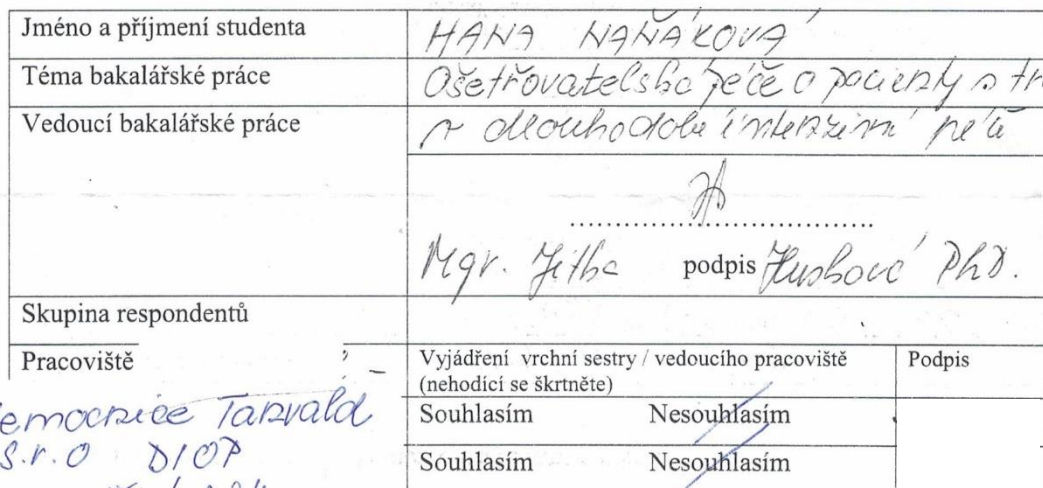 Jméno a příjmení studenta HANA NAŇÁKOVÁ
Téma bakalářské práce Ošetřovatelská péče o pacienty s
Vedoucí bakalářské práce v dlouhodobé intenzivní péči
Mgr. Jitka podpis PhD.
Skupina respondentů
Pracoviště Vyjádření vrchní sestry / vedoucího pracoviště Podpis
(nehodící se škrtněte)
emocnice Tanvald Souhlasím Nesouhlasím
s.r.o DIOP Souhlasím Nesouhlasím